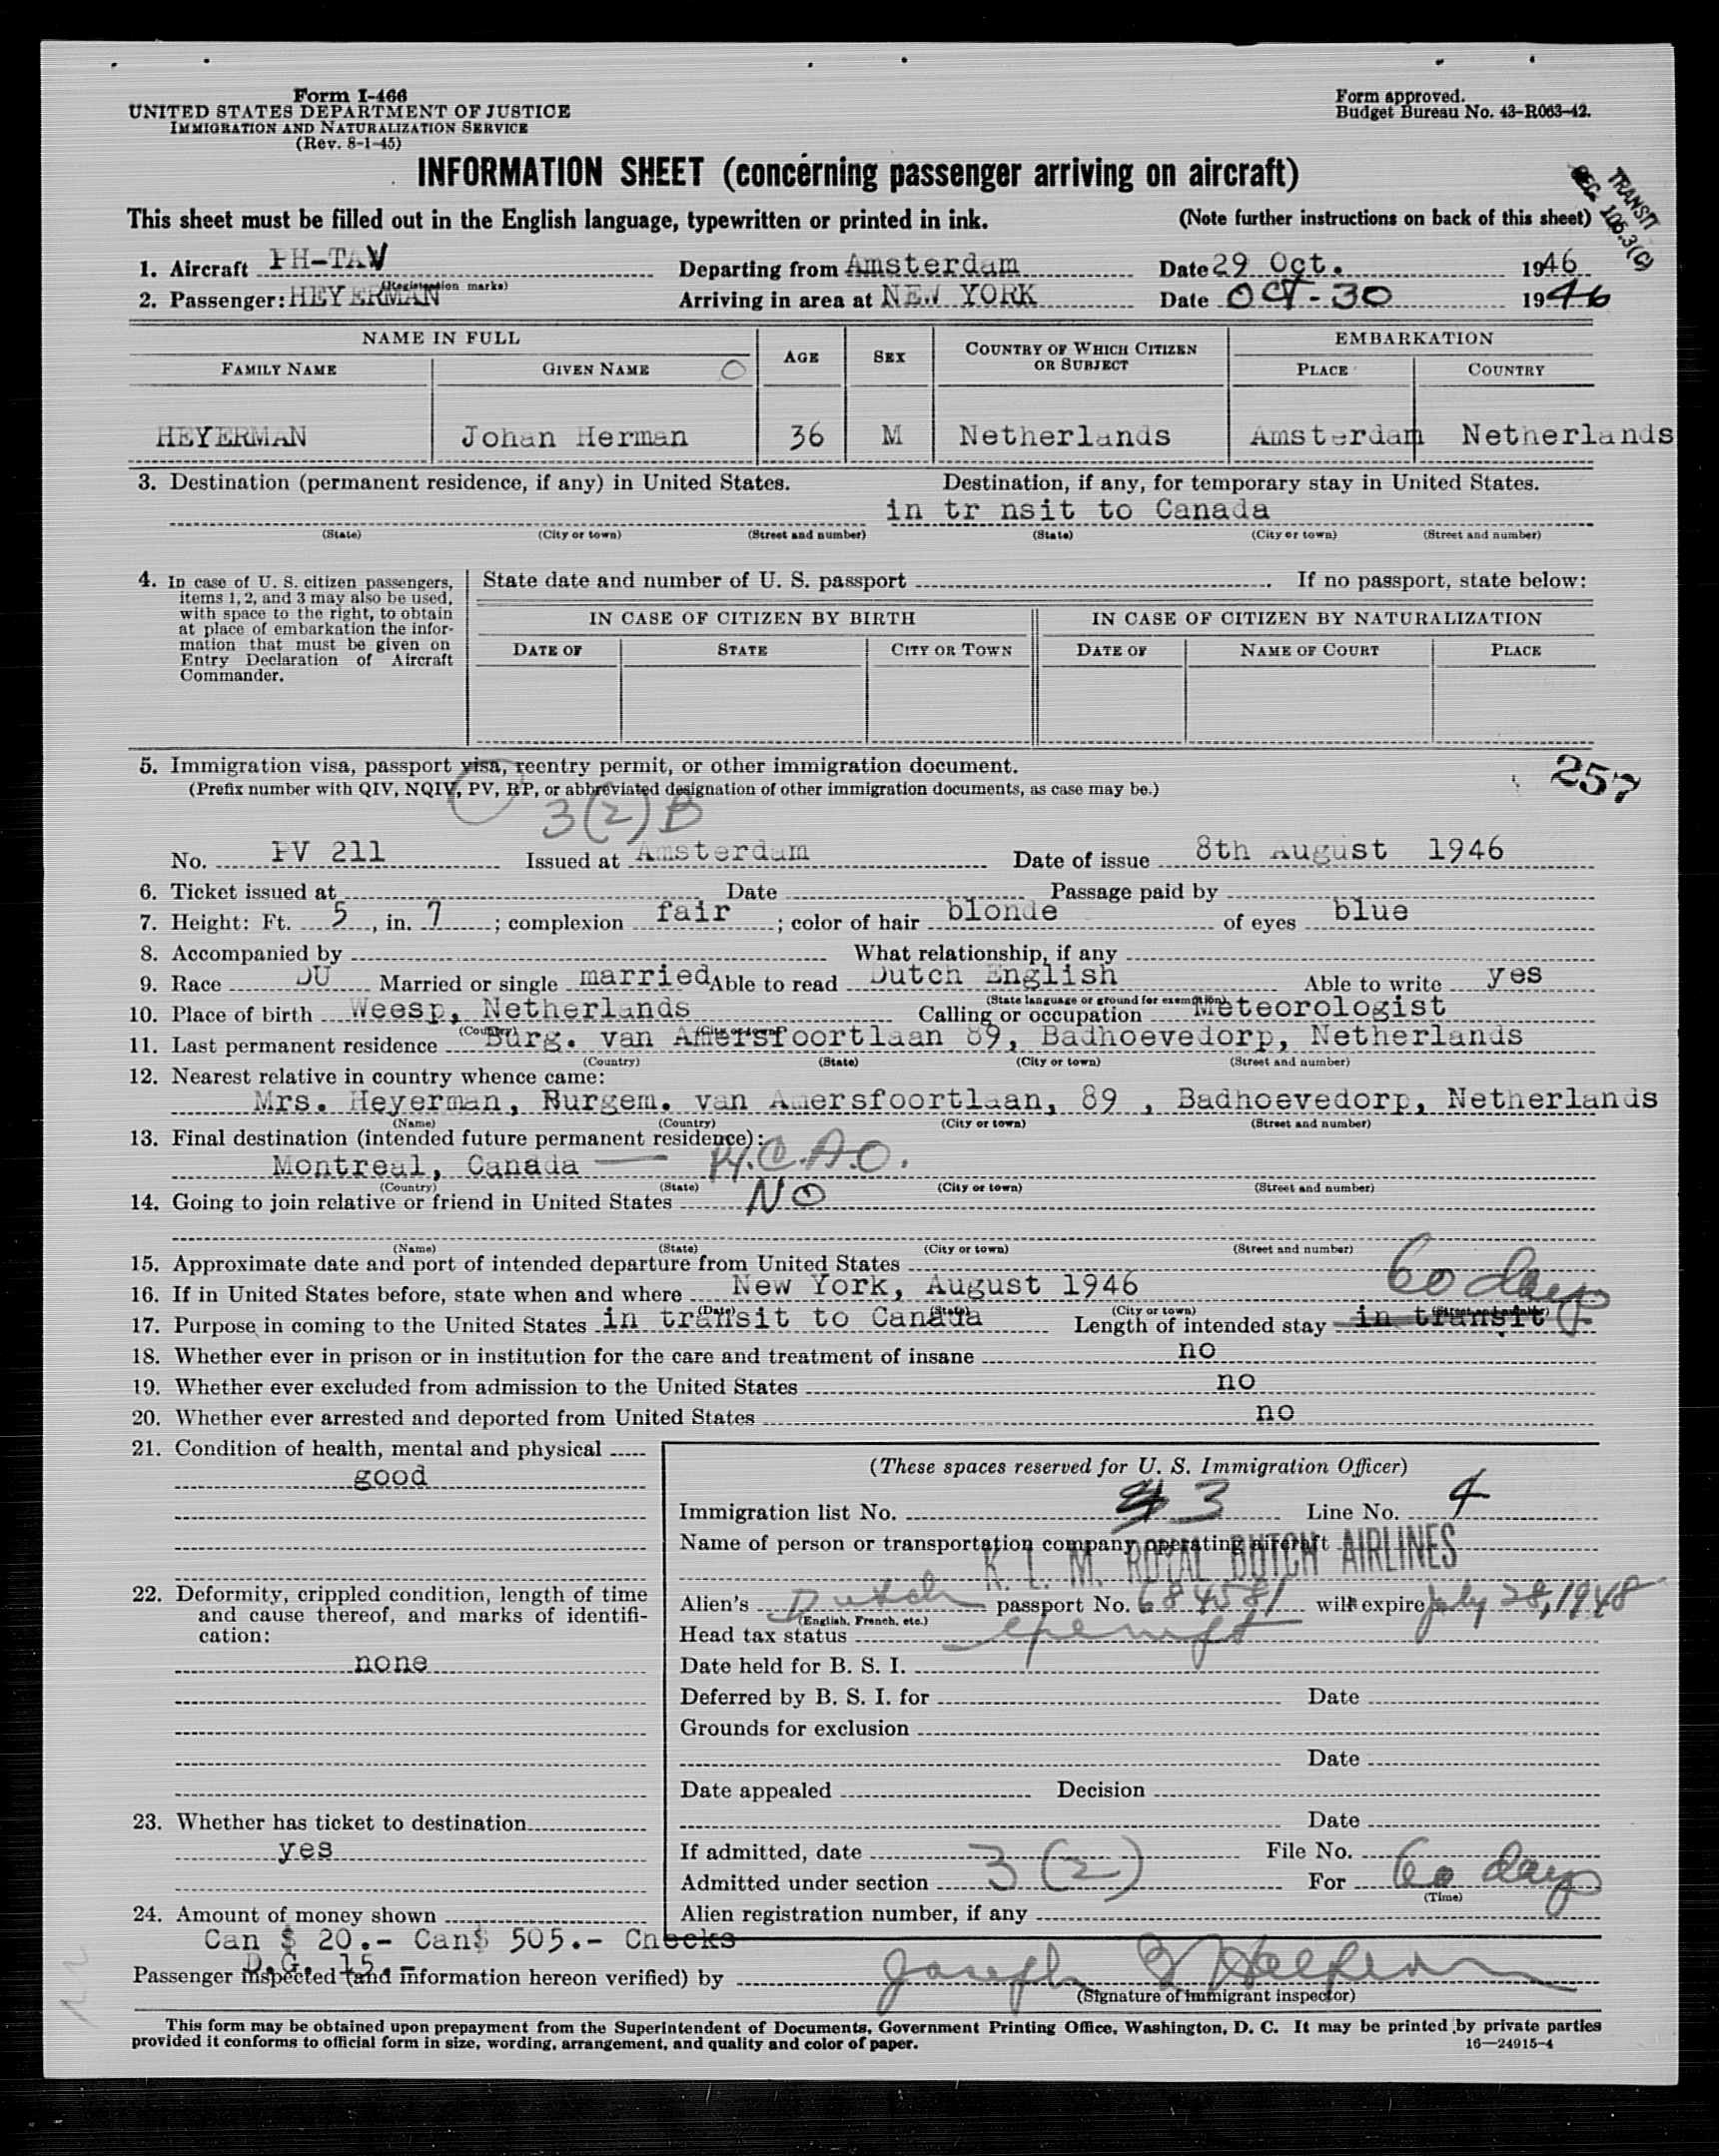 Form I-466
UNITED STATES DEPARTMENT OF JUSTICE
IMMIGRATION AND NATURALIZATION SERVICE
(Rev. 8-1-45)
Form approved.
Budget Bureau No. 43-R063-42.
INFORMATION SHEET (concerning passenger arriving on aircraft)
TRANSIT
SEC 105.3(C)
This sheet must be filled out in the English language, typewritten or printed in ink. (Note further instructions on back of this sheet)
1. Aircraft PH-TAV Departing from Amsterdam Date 29 Oct. 1946
(Registration marks)
2. Passenger: HEYERMAN Arriving in area at NEW YORK Date OCT-30 1946
NAME IN FULL AGE SEX COUNTRY OF WHICH CITIZEN OR SUBJECT EMBARKATION
FAMILY NAME GIVEN NAME PLACE COUNTRY
HEYERMAN Johan Herman 36 M Netherlands Amsterdam Netherlands
3. Destination (permanent residence, if any) in United States. Destination, if any, for temporary stay in United States.
in tr nsit to Canada
(State) (City or town) (Street and number) (State) (City or town) (Street and number)
4. In case of U. S. citizen passengers, items 1, 2, and 3 may also be used, with space to the right, to obtain at place of embarkation the information that must be given on Entry Declaration of Aircraft Commander.
State date and number of U. S. passport . If no passport, state below:
IN CASE OF CITIZEN BY BIRTH IN CASE OF CITIZEN BY NATURALIZATION
DATE OF STATE CITY OR TOWN DATE OF NAME OF COURT PLACE
5. Immigration visa, passport visa, reentry permit, or other immigration document. 257
(Prefix number with QIV, NQIV, PV, RP, or abbreviated designation of other immigration documents, as case may be.)
3(2)B
No. PV 211 Issued at Amsterdam Date of issue 8th August 1946
6. Ticket issued at Date Passage paid by
7. Height: Ft. 5, in. 7; complexion fair; color of hair blonde of eyes blue
8. Accompanied by What relationship, if any
9. Race DU Married or single married Able to read Dutch English Able to write yes
(State language or ground for exemption)
10. Place of birth Weesp, Netherlands Calling or occupation Meteorologist
(Country) (City or town)
11. Last permanent residence Burg. van Amersfoortlaan 89, Badhoevedorp, Netherlands
(Country) (State) (City or town) (Street and number)
12. Nearest relative in country whence came:
Mrs. Heyerman, Burgem. van Amersfoortlaan, 89 , Badhoevedorp, Netherlands
(Name) (Country) (City or town) (Street and number)
13. Final destination (intended future permanent residence):
Montreal, Canada
(Country) (State) (City or town) (Street and number)
14. Going to join relative or friend in United States NO
(Name) (State) (City or town) (Street and number)
15. Approximate date and port of intended departure from United States
16. If in United States before, state when and where New York, August 1946 60 days
(Date) (State) (City or town) (Street and number)
17. Purpose in coming to the United States in transit to Canada Length of intended stay in transit
18. Whether ever in prison or in institution for the care and treatment of insane no
19. Whether ever excluded from admission to the United States no
20. Whether ever arrested and deported from United States no
21. Condition of health, mental and physical
good
(These spaces reserved for U. S. Immigration Officer)
Immigration list No. 3 Line No. 4
Name of person or transportation company operating aircraft
K. L. M. ROYAL DUTCH AIRLINES
22. Deformity, crippled condition, length of time and cause thereof, and marks of identification:
none
Alien's Dutch passport No. 684581 will expire July 28, 1948
(English, French, etc.)
Head tax status exempt
Date held for B. S. I.
Deferred by B. S. I. for Date
Grounds for exclusion
Date
Date appealed Decision
Date
23. Whether has ticket to destination
yes
If admitted, date File No.
Admitted under section 3(2) For 60 days
(Time)
24. Amount of money shown
Can $ 20.- Can$ 505.- Checks
D.G. 15.-
Alien registration number, if any
Passenger inspected (and information hereon verified) by
(Signature of immigrant inspector)
This form may be obtained upon prepayment from the Superintendent of Documents, Government Printing Office, Washington, D. C. It may be printed by private parties
provided it conforms to official form in size, wording, arrangement, and quality and color of paper. 16—24915-4